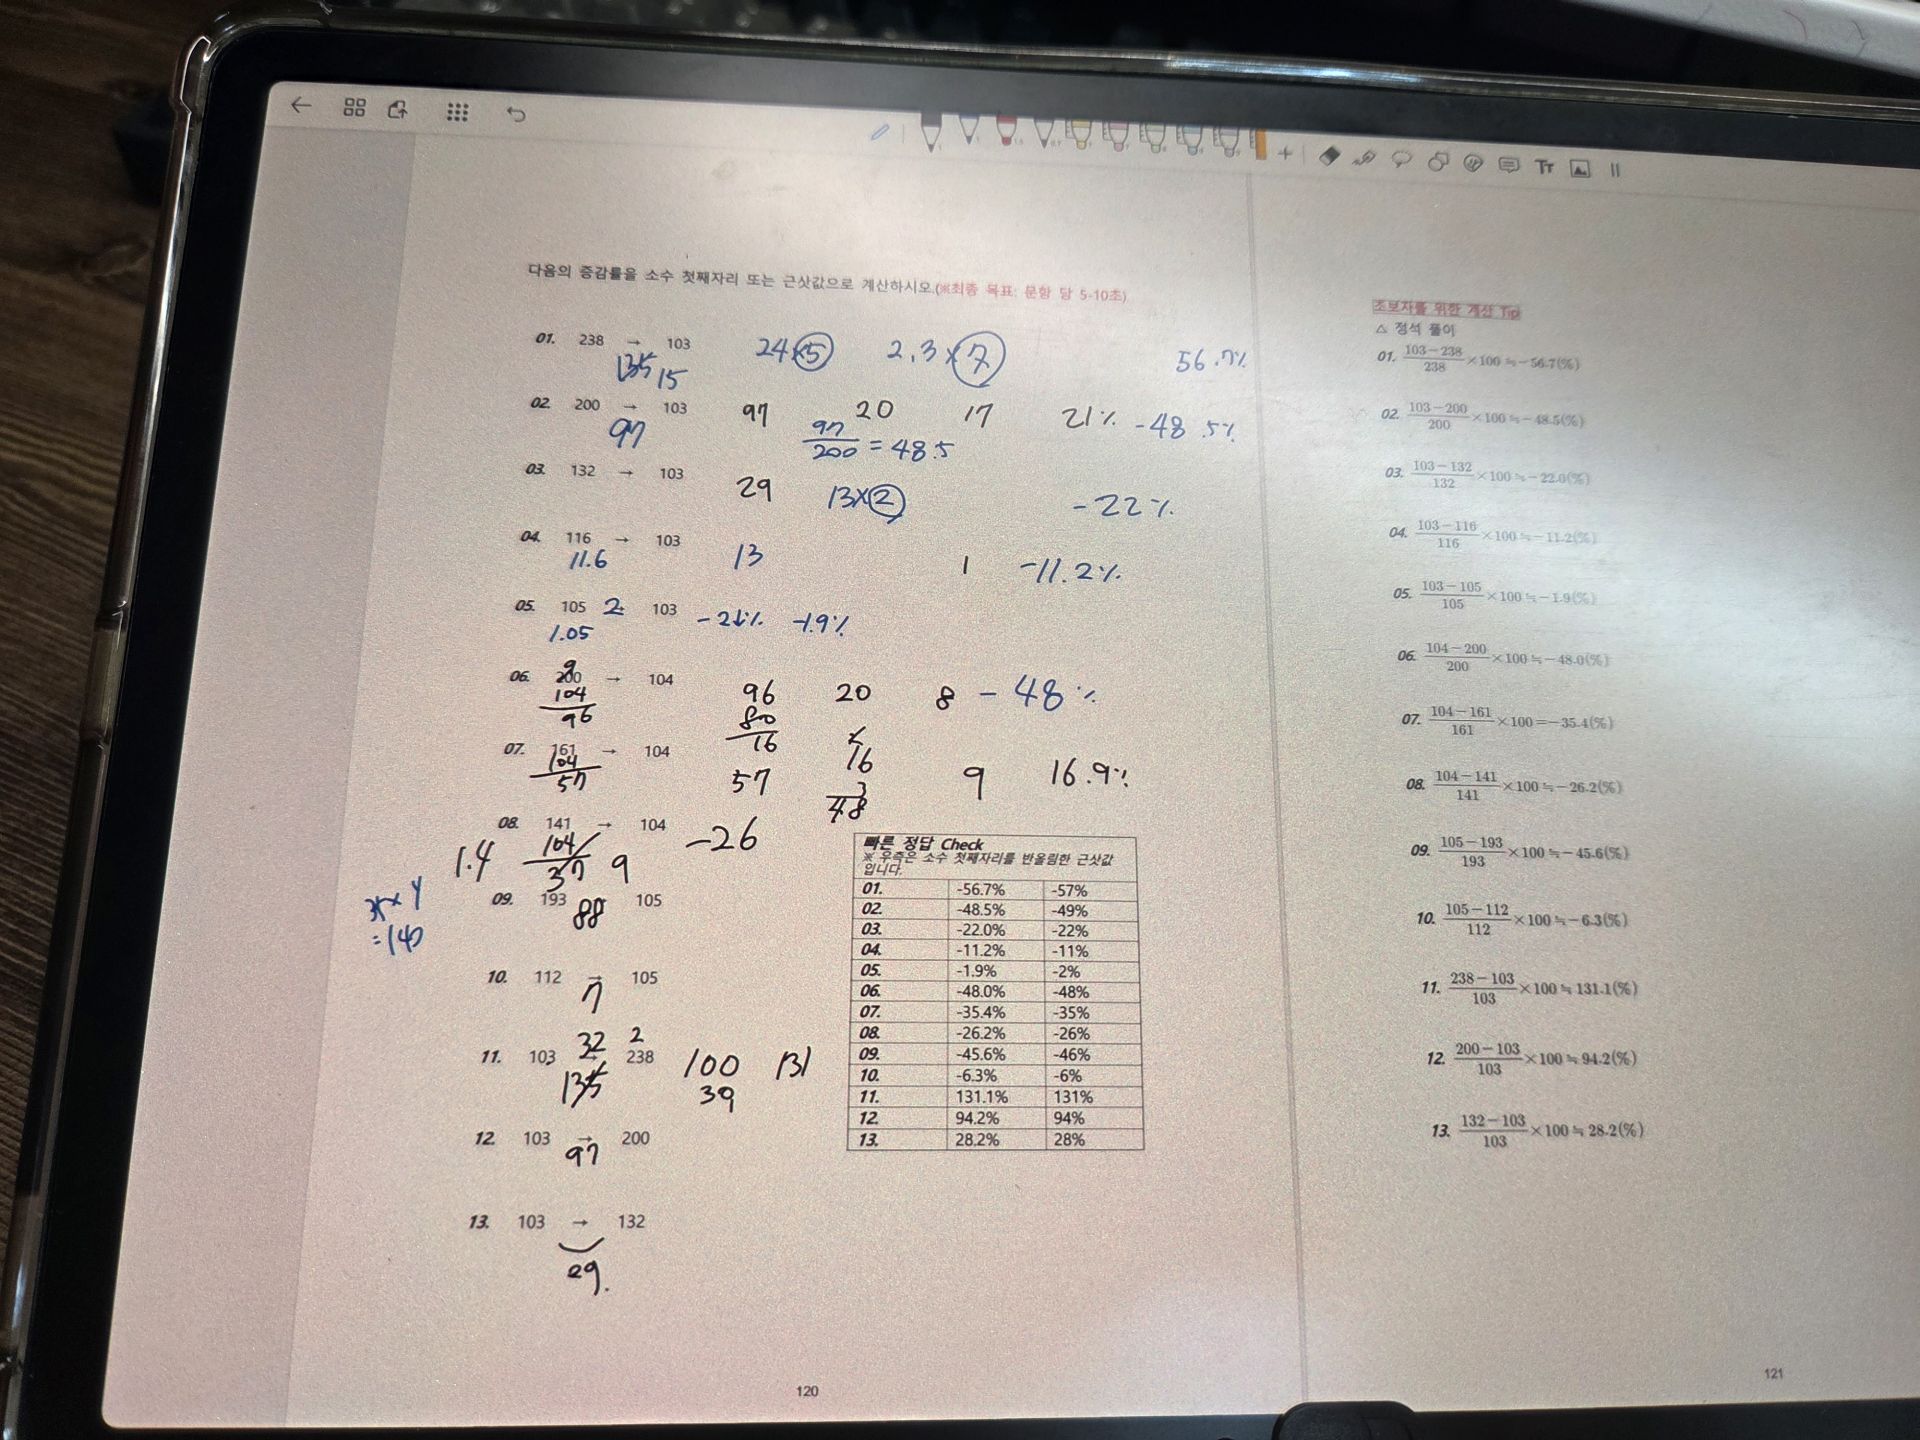 다음의 증감률을 소수 첫째자리 또는 근삿값으로 계산하시오.(※최종 목표: 문항 당 5-10초)
01. 238 → 103 24×5 2.3×7 56.7%
135 15
02. 200 → 103 97 20 17 21% -48.5%
97 97/200 = 48.5
03. 132 → 103
29 13×2 -22%
04. 116 → 103
11.6 13 1 -11.2%
05. 105 2 103 -2↓% -1.9%
1.05
06. 200 → 104
104
96
96 20 8 -48%
80
16
07. 161 → 104
104
57
57 16 9 16.9%
3
48
08. 141 → 104 -26
1.4 104
37 9
=140
09. 193 88 105
10. 112 → 105
7
32 2
11. 103 → 238 100 131
135 39
12. 103 → 200
97
13. 103 → 132
29.
빠른 정답 Check
※ 우측은 소수 첫째자리를 반올림한 근삿값
입니다.
01. -56.7% -57%
02. -48.5% -49%
03. -22.0% -22%
04. -11.2% -11%
05. -1.9% -2%
06. -48.0% -48%
07. -35.4% -35%
08. -26.2% -26%
09. -45.6% -46%
10. -6.3% -6%
11. 131.1% 131%
12. 94.2% 94%
13. 28.2% 28%
120
초보자를 위한 계산 Tip
△ 정석 풀이
01. (103-238)/238 ×100 ≒ -56.7(%)
02. (103-200)/200 ×100 ≒ -48.5(%)
03. (103-132)/132 ×100 ≒ -22.0(%)
04. (103-116)/116 ×100 ≒ -11.2(%)
05. (103-105)/105 ×100 ≒ -1.9(%)
06. (104-200)/200 ×100 ≒ -48.0(%)
07. (104-161)/161 ×100 = -35.4(%)
08. (104-141)/141 ×100 ≒ -26.2(%)
09. (105-193)/193 ×100 ≒ -45.6(%)
10. (105-112)/112 ×100 ≒ -6.3(%)
11. (238-103)/103 ×100 ≒ 131.1(%)
12. (200-103)/103 ×100 ≒ 94.2(%)
13. (132-103)/103 ×100 ≒ 28.2(%)
121